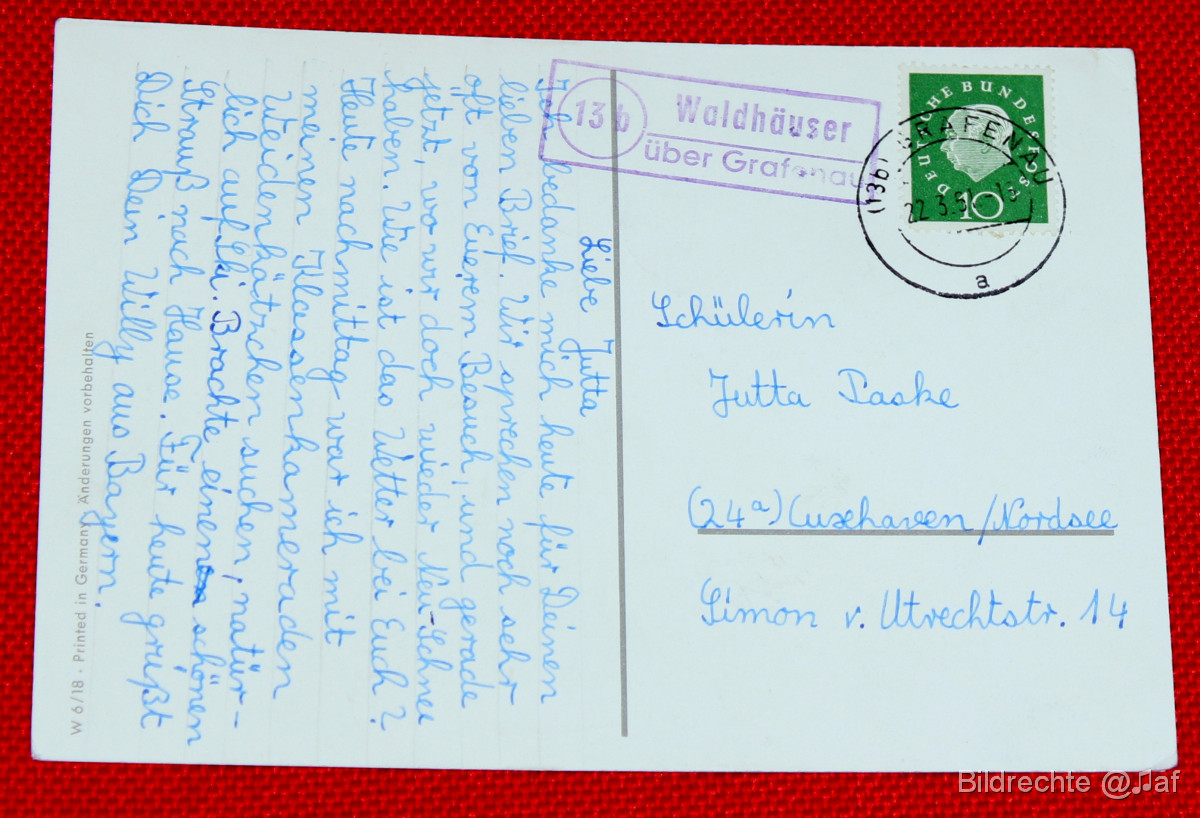 Liebe Jutta
Ich bedanke mich heute für Deinen
lieben Brief. Wir sprechen noch sehr
oft von Euerem Besuch, und gerade
jetzt, wo wir doch wieder Neu-Schnee
haben. Wie ist das Wetter bei Euch?
Heute nachmittag war ich mit
meinen Klassenkameraden
Weidenkätzchen suchen, natür-
lich auf Ski. Brachte einen schönen
Strauß nach Hause. Für heute grüßt
Dich Dein Willy aus Bayern.
W 6/18 · Printed in Germany · Änderungen vorbehalten
13 b
Waldhäuser
über Grafenau
DEUTSCHE BUNDESPOST
10
(13b) GRAFENAU
22.3.
a
Schülerin
Jutta Paske
(24a) Cuxhaven/Nordsee
Simon v. Utrechtstr. 14
Bildrechte @♫af